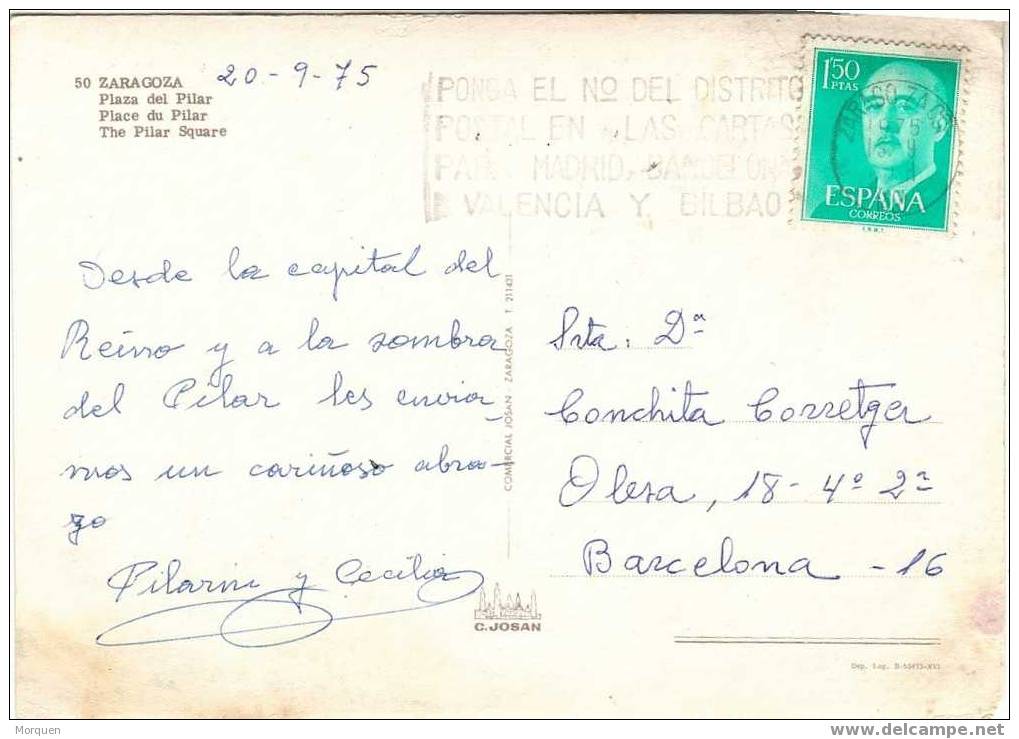 50 ZARAGOZA
Plaza del Pilar
Place du Pilar
The Pilar Square
20-9-75
PONGA EL Nº DEL DISTRITO
POSTAL EN LAS CARTAS
PARA MADRID, BARCELONA
VALENCIA Y BILBAO
1'50
PTAS
ZARAGOZA
1975
ESPAÑA
CORREOS
Desde la capital del
Reino y a la sombra
del Pilar les envia-
mos un cariñoso abra-
zo
Pilarin y Cecilia
COMERCIAL JOSAN - ZARAGOZA T. 211431
Srta: Dª
Conchita Corretger
Olesa, 18 - 4º 2ª
Barcelona - 16
C.JOSAN
Dep. Leg. B-55473-XVI
Morquen
www.delcampe.net